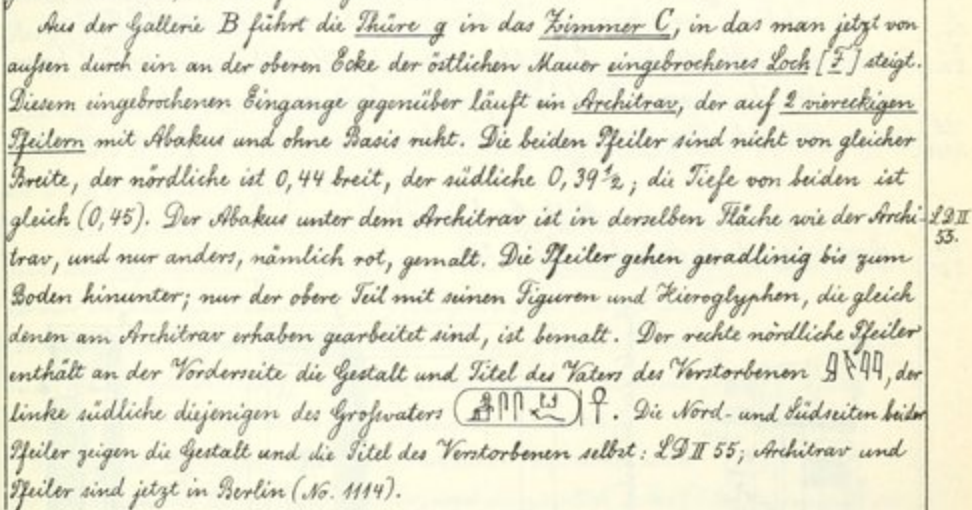 Aus der Gallerie B führt die Thüre g in das Zimmer C, in das man jetzt von
aufsen durch ein an der oberen Ecke der östlichen Mauer eingebrochenes Loch [F] steigt.
Diesem eingebrochenen Eingange gegenüber läuft ein Architrav, der auf 2 viereckigen
Pfeilern mit Abakus und ohne Basis ruht. Die beiden Pfeiler sind nicht von gleicher
Breite, der nördliche ist 0,44 breit, der südliche 0,39 1/2; die Tiefe von beiden ist
gleich (0,45). Der Abakus unter dem Architrav ist in derselben Fläche wie der Archi-
LD II
53.
trav, und nur anders, nämlich rot, gemalt. Die Pfeiler gehen geradlinig bis zum
Boden hinunter; nur der obere Teil mit seinen Figuren und Hieroglyphen, die gleich
denen am Architrav erhaben gearbeitet sind, ist bemalt. Der rechte nördliche Pfeiler
enthält an der Vorderseite die Gestalt und Titel des Vaters des Verstorbenen , der
linke südliche diejenigen des Grofsvaters . Die Nord- und Südseiten beider
Pfeiler zeigen die Gestalt und die Titel des Verstorbenen selbst: LD II 55; Architrav und
Pfeiler sind jetzt in Berlin (No. 1114).